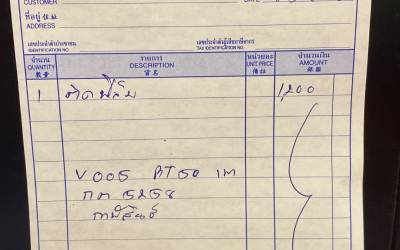 CUSTOMER
ที่อยู่ 住址
ADDRESS
เลขประจำตัวประชาชน เลขประจำตัวผู้เสียภาษีอากร
IDENTIFICATION NO. TAX IDENTIFICATION NO.
จำนวน รายการ หน่วยละ จำนวนเงิน
QUANTITY DESCRIPTION UNIT PRICE AMOUNT
數量 貨名 價錢 銀額
1 ติดฟิล์ม 1,200
V005 RT50
กท 5258
กาฬสินธุ์